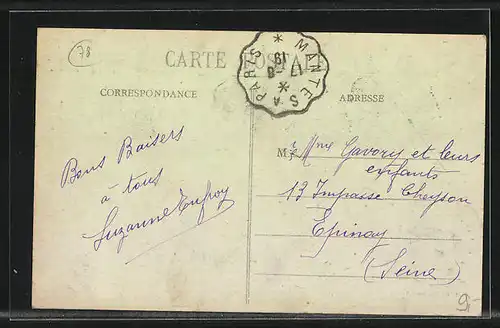 78
CARTE POSTALE
MANTES A PARIS
17 - 8
18
CORRESPONDANCE
ADRESSE
Bons Baisers
à tous
Suzanne
M
Mme Gavory et leurs
enfants
13 Impasse Cheyson
Epinay
(Seine)
9-